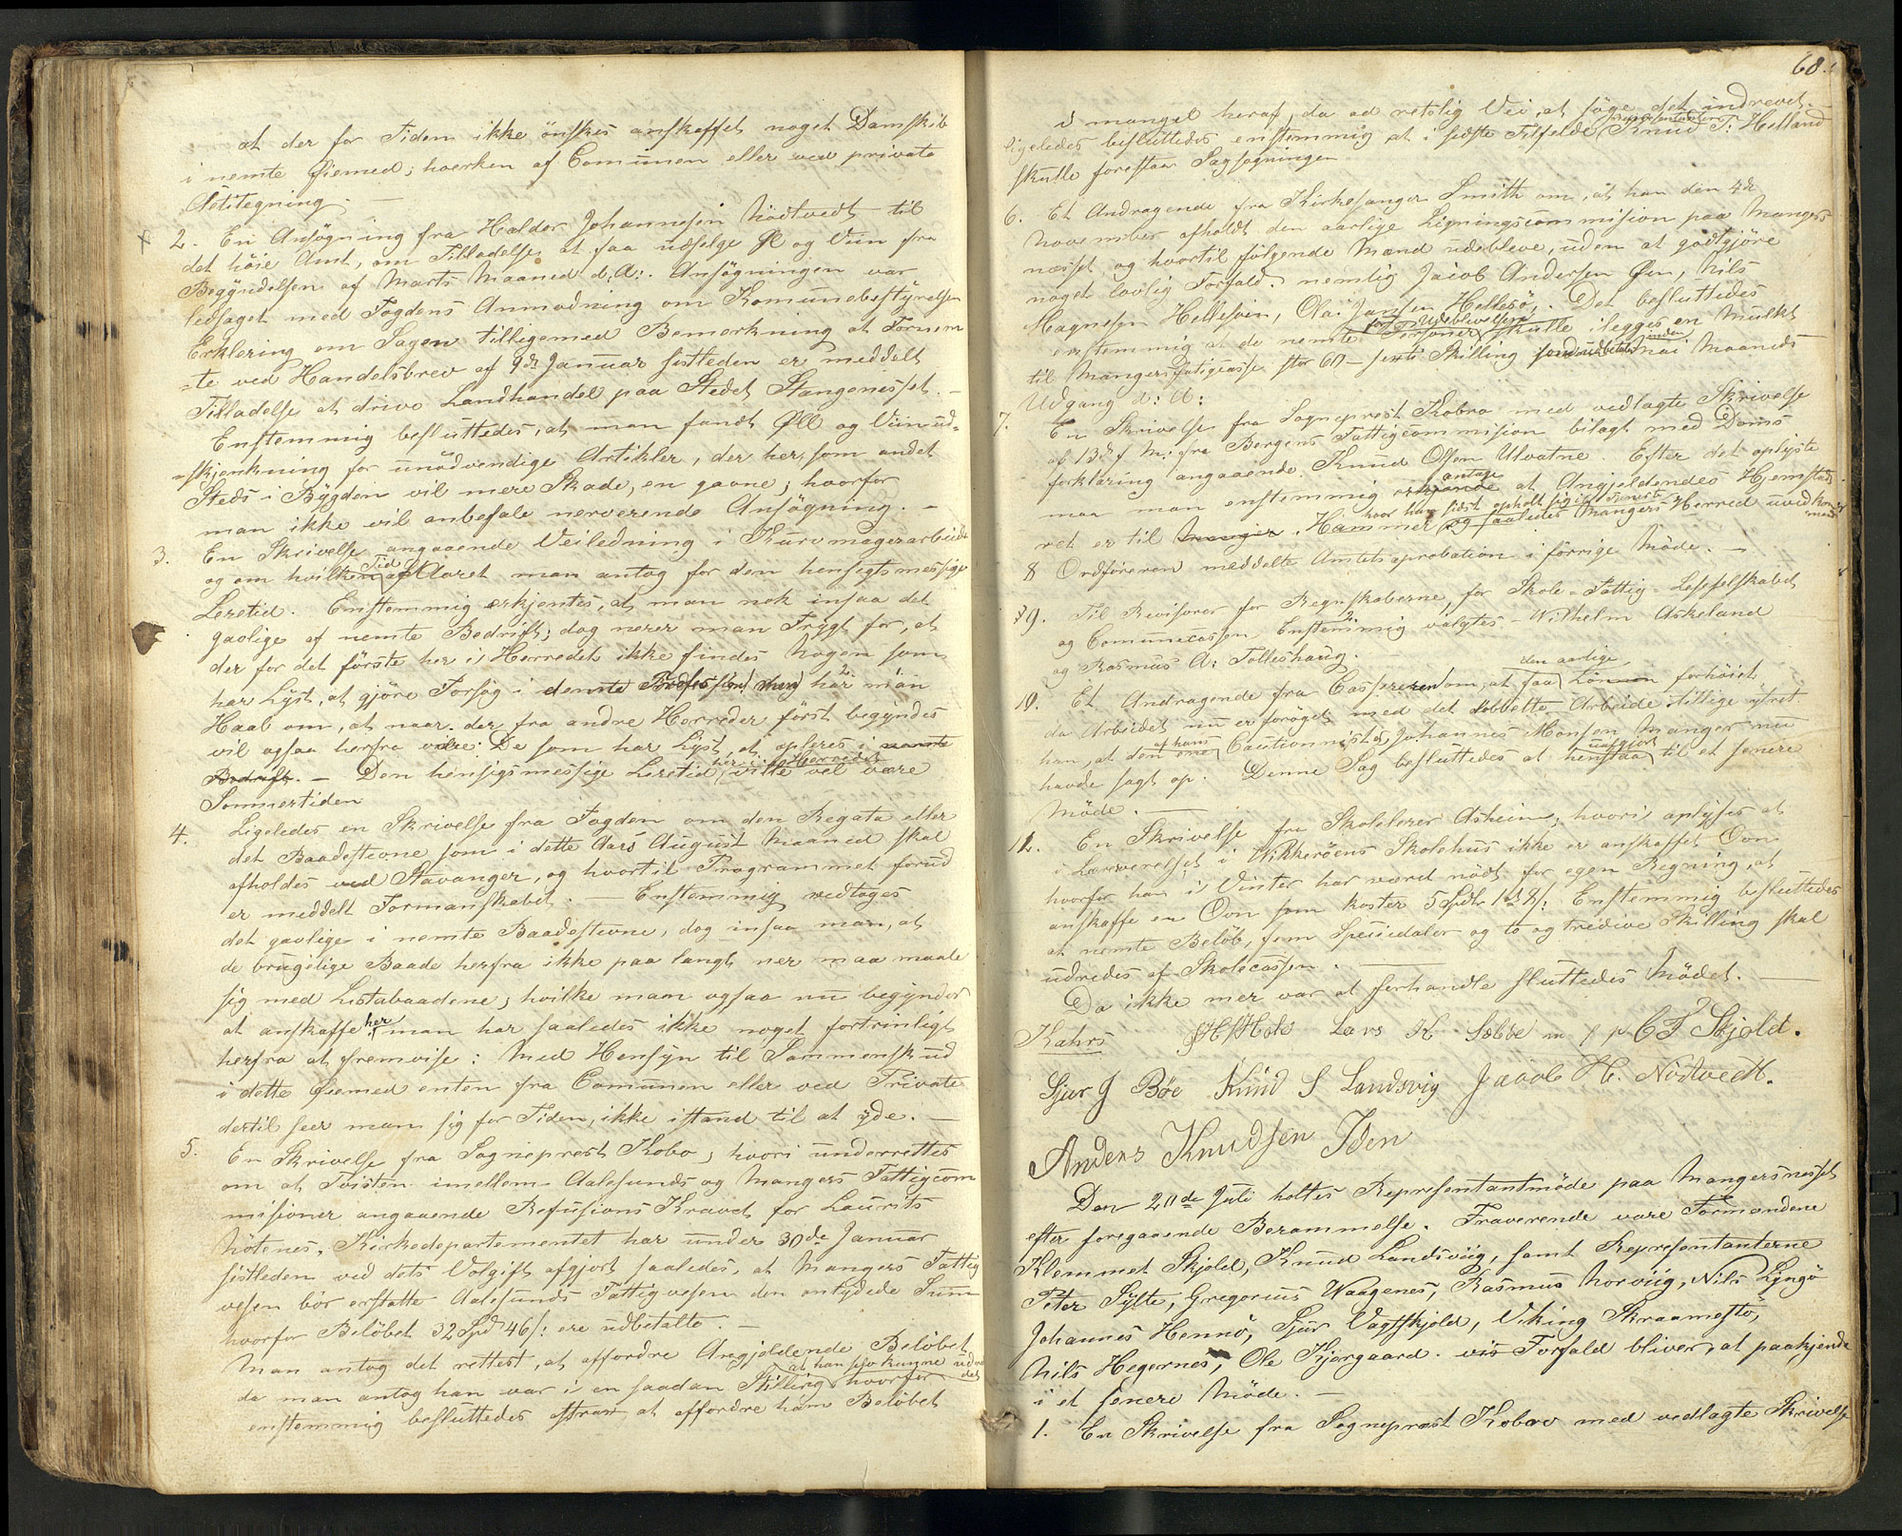 at der for Tiden ikke önskes anskaffet noget Damskib
i nemte Øiemed; hverken af Comunen eller ved private
Actitegning. —
2. En Ansögning fra Haldor Johannesen Nödtvedt til
det höie Amt, om Tilladelse at faa udsælge Øl og Viin fra
Begyndelsen af Marts Maaned d: A:. Ansögningen var
ledsaget med Fogdens Anmodning om Komunebestyrelsen
Erklering om Sagen tilligemed Bemerkning at Fornem
=te ved Handelsbrev af 9de Januar sistleden er meddelt
Tilladelse at drive Landhandel paa Stedet Stangenesset. —
Enstemmig besluttedes, at man fandt Øll og Viinud=
=skjenkning for unödvendige Artikler, der her, som andet
Steds i Bygden vil mere Skade, en gavne; hvorfor
man ikke vil anbefale nerverende Ansögning. —
3. En Skrivelse angaaende Veiledning i Kurvmagerarbeidet
og om hvilken Tid af Aaret man antog for den hensigtsmessige
Leretid. Enstemmig erkjentes, at man nok insaa det
gavlige af nemte Bedrift; dog nerer man Frygt for, at
der for det förste her i Herredet ikke findes Nogen som
har Lyst, at gjöre Forsög i demte har man
Haab om, at naar der fra andre Herreder först begyndes
vil ogsaa herfra vilre De som har Lyst, at opleres i nemte
Bedrift. — Den hensigsmessige Leretid her i Herredet vilte vel være
Sommertiden
4. Ligeledes en Skrivelse fra Fogden om den Regata eller
det Baadestevne som i dette Aars August Maaned skal
afholdes ved Stavanger, og hvortil Programmet forud
er meddelt Formanskabet. — Enstemmig vedtoges
det gavlige i nemte Baadestevne, dog insaa man, at
de brugelige Baade herfra ikke paa langt ner maa maale
sig med Listabaadene; hvilke man ogsaa nu begynder
at anskaffe her, man har saaledes ikke noget fortrinligt
herfra at fremvise: Med Hensyn til Sammenskud
i dette Øiemed enten fra Comunen eller ved Private
dertil seer man sig for Tiden, ikke istand til at yde. —
5. En Skrivelse fra Sogneprest Kobro, hvori underrettes
om at Tvisten imellem Aalesunds og Mangers Fattigcom
misioner angaaende Refusions Kravet for Laurits
Nötenes, Kirkedepartementet har under 30de Januar
sistleden ved dets Votgift afgjort saaledes, at Mangers Fattig
vesen bör erstatte Aalesunds Fattigvesen den antydede Sum
hvorfor Belöbet 32 Spd 46 s: ere udbetalte. —
Man antog det rettest, at affordre Angjeldende Belöbet
da man antog han var i en saadan Stilling at han kunne udrede det hvorfor
enstemmig besluttedes at affordre ham Belöbet
60.
i mangel heraf, da ad retslig Vei, at söge det indrevet. —
ligeledes besluttedes enstemmig at i sidste Tilfelde Representanten Knud T: Helland
skulle forestaa Sagsögningen
6. Et Andragende fra Kirkesanger Smith om, at han den 4de
November afholdt den aarlige Ligningscommision paa Mangers
nesset, og hvortil fölgende Mænd udebleve, uden at godtgjöre
noget lovlig Forfald. nemlig Jacob Andersen Øen, Nils
Magnesen Hellesøen, Ola: Jansen Hellesö. Det besluttedes
enstemmig at de nemte Personer for Udeblivelsen skulle ilegges en Mulkt
til Mangers Fatigcasse stor 60 — sexti Skilling inden Mai Maaneds
Udgang d: A:
7. En Skrivelse fra Sogneprest Kobro med vedlagte Skrivelse
af 13de f M: fra Bergens Fattigcommision bilagt med Doms
forklaring angaaende Knud Olsen Ulvatne. Efter det oplyste
maa man enstemmig antage at Angjeldendes Hjemsteds
ret er til Hammer hvor han sidst opholt sig og saaledes Mangers Herred uvedkom
mend
8 Ordföreren meddelte Amtets aprobation i förrige Möde. —
§ 9. Til Revisorer for Regnskaberne, for Skole-Fattig-Leseselskabet
og Comunecassen Enstemmig valgtes — Wilhelm Askeland
og Rasmus A: Tolleshaug.
10. Et Andragende fra Cassereren om, at faa den aarlige Lönnen forhöiet
da Arbeidet nu er foröget med det dobbelte Arbeide tillige ytret
han, at den ene af hans Cautionnister, Johannes Monsen Manger nu
havde sagt op. Denne Sag besluttedes at henstaa uafgjort til et senere
Möde. —
12. En Skrivelse fra Skolelerer Askeim, hvori oplyses at
i Læreverelset i Nikkeröens Skolehus ikke er anskaffet Oon
hvorfor han i Vinter har været nödt for egen Regning, at
anskaffe en Oon som koster 5 Spdlr 1 32 s: Enstemmig besluttedes
at nemte Belöb, fem Speciedaler og to og tredive Skilling skal
udredes af Skolecassen. —
Da ikke mer var at forhandle sluttedes Mödet. —
Kahrs Lars K Sæbbe m f p C F Skjold.
Sjur J Böe Knud S Landsvig Jacob H. Nødtvedt.
Anders Knudsen Iden
Den 20de Juli holtes Representantmöde paa Mangersnesset
efter foregaaende Berammelse. Fraverende vare Formændene
Klemmet Skjold, Knud Landsviig, samt Representanterne
Peter Sylte, Gregorius Waagenes, Rasmus Norviig, Nils Lyngö
Johannes Hennö, Sjur Vagtskjold, Viking Skraamestö,
Nils Hegernes, Ole Kjergaard. vis Forfald bliver, at paakjende
i et senere Möde. —
1. En Skrivelse fra Sogneprest Kobro med vedlagte Skrivelse